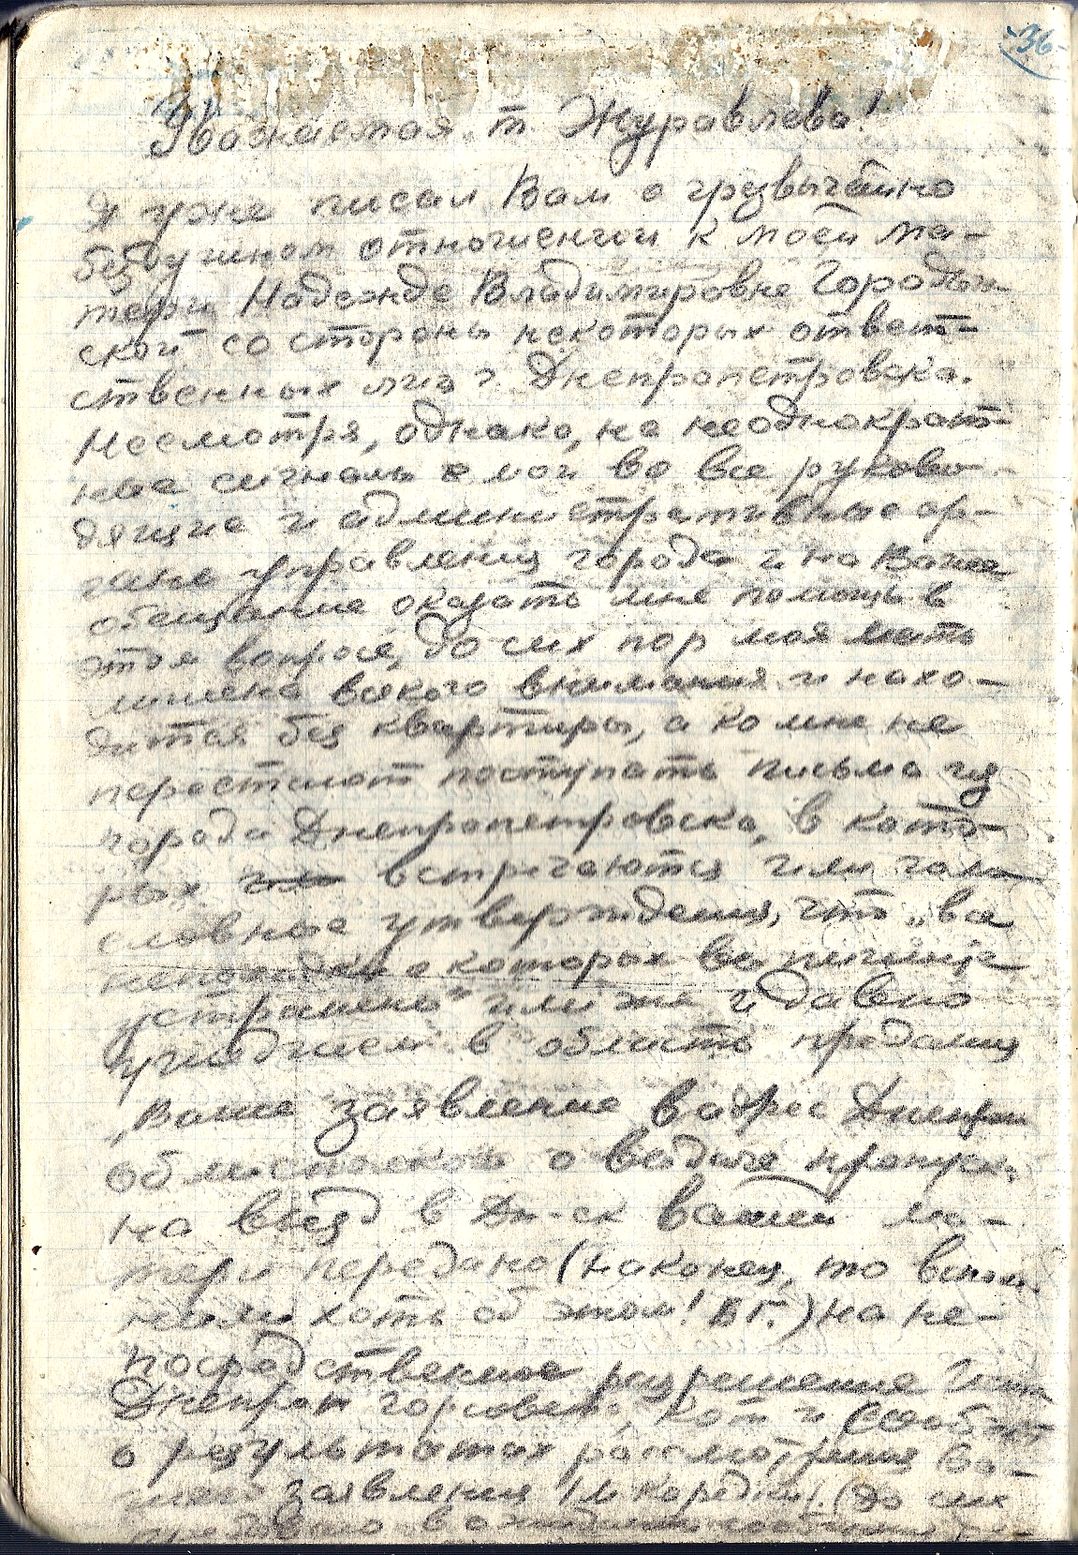 36
Уважаемая т. Журавлева!
Я уже писал Вам о чрезвычайно
бездушном отношении к моей ма-
тери Надежде Владимировне Городын
ской со стороны некоторых ответ-
ственных лиц г. Днепропетровска.
Несмотря, однако, на неоднократ-
ные сигналы мои во все руково-
дящие и административные ор-
ганы управления города и на Ваше
обещание оказать мне помощь в
этом вопросе, до сих пор моя мать
лишена всякого внимания и нахо-
дится без квартиры, а ко мне не
перестают поступать письма из
города Днепропетровска, в кото-
рых встречаются или голо
словные утверждения, что „все
о которых вы пишите
устранены" или же и давно
ушедшем в область предания
„Ваше заявление в адрес Днепро
о выдаче пропуска
на въезд в Дн-ск вашей ма-
тери передано (наконец, то вспом
нили хоть об этом! В Г.) на не-
посредственное разрешение
Днепропт горсовета, кот и сообщит
о результатах рассмотрения Ва-
шего заявления (до сих
в ожидании